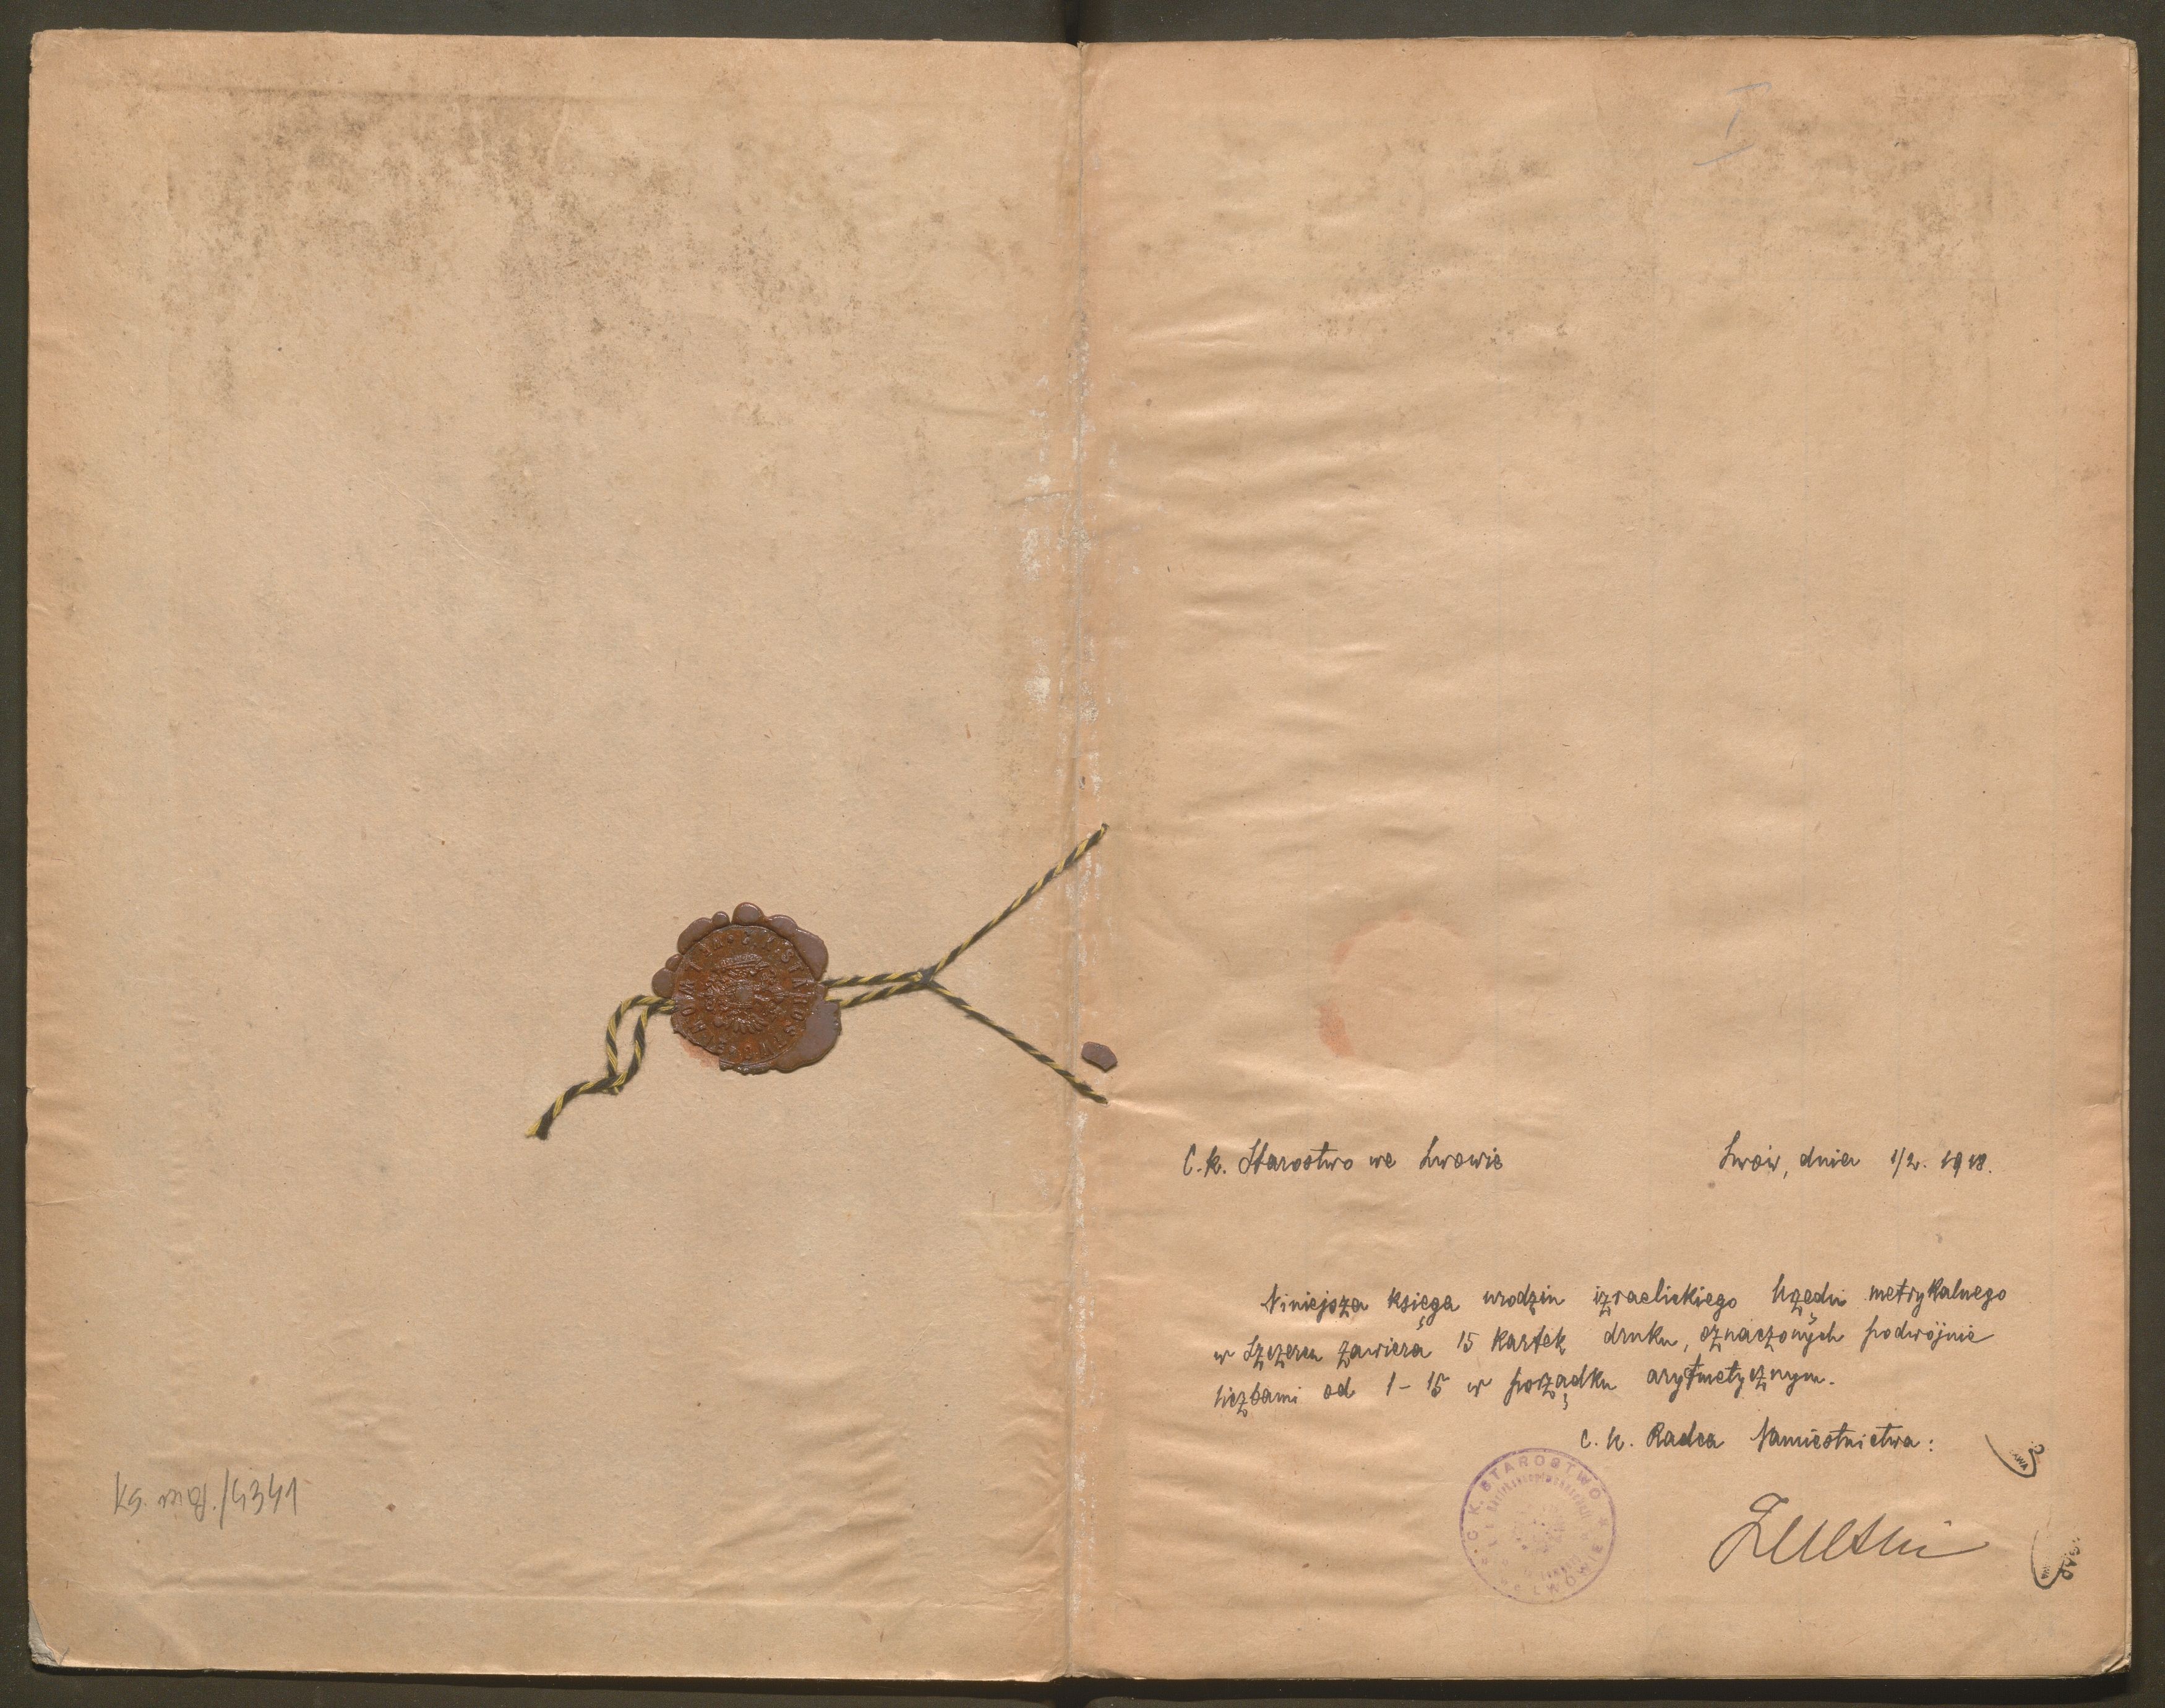 I
C. k. Starostwo we Lwowie
Lwów, dnia 1/2. 1918.
Niniejsza księga urodzin izraelickiego Urzędu metrykalnego
w Szczercu zawiera 15 kartek druku, oznaczonych podwójnie
liczbami od 1-15 w porządku arytmetycznym.
C. k. Radca Namiestnictwa:
C. K. STAROSTWO
WE LWOWIE
4341